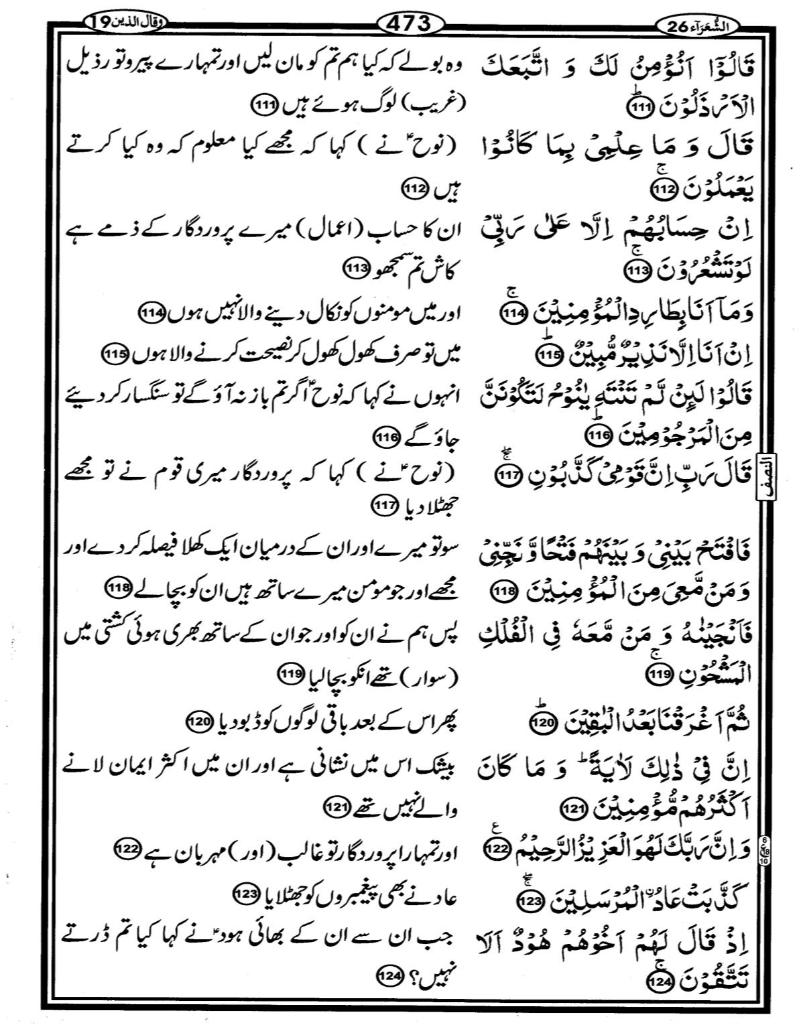 الشُّعَرَآء 26
473
وَقَالَ الَّذِيْنَ 19
قَالُوْۤا اَنُؤْمِنُ لَكَ وَ اتَّبَعَكَ
الْاَرْذَلُوْنَ ؕ 111
وہ بولے کہ کیا ہم تم کو مان لیں اور تمہارے پیرو تو رذیل
(غریب) لوگ ہوئے ہیں 111
قَالَ وَ مَا عِلْمِیْ بِمَا كَانُوْا
یَعْمَلُوْنَ ۚ 112
(نوحؑ نے ) کہا کہ مجھے کیا معلوم کہ وہ کیا کرتے
ہیں 112
اِنْ حِسَابُهُمْ اِلَّا عَلٰی رَبِّیْ
لَوْ تَشْعُرُوْنَ ۚ 113
ان کا حساب (اعمال) میرے پروردگار کے ذمے ہے
کاش تم سمجھو 113
وَ مَاۤ اَنَا بِطَارِدِ الْمُؤْمِنِیْنَ ۚ 114
اور میں مومنوں کو نکال دینے والا نہیں ہوں 114
اِنْ اَنَا اِلَّا نَذِیْرٌ مُّبِیْنٌ ؕ 115
میں تو صرف کھول کھول کر نصیحت کرنے والا ہوں 115
قَالُوْا لَىِٕنْ لَّمْ تَنْتَهِ یٰنُوْحُ لَتَكُوْنَنَّ
مِنَ الْمَرْجُوْمِیْنَ ؕ 116
انہوں نے کہا کہ نوحؑ اگر تم باز نہ آؤ گے تو سنگسار کر دیئے
جاؤ گے 116
قَالَ رَبِّ اِنَّ قَوْمِیْ كَذَّبُوْنِ 117
النصف
(نوحؑ نے ) کہا کہ پروردگار میری قوم نے تو مجھے
جھٹلا دیا 117
فَافْتَحْ بَیْنِیْ وَ بَیْنَهُمْ فَتْحًا وَّ نَجِّنِیْ
وَ مَنْ مَّعِیَ مِنَ الْمُؤْمِنِیْنَ 118
سو تو میرے اور ان کے درمیان ایک کھلا فیصلہ کر دے اور
مجھے اور جو مومن میرے ساتھ ہیں ان کو بچا لے 118
فَاَنْجَیْنٰهُ وَ مَنْ مَّعَهٗ فِی الْفُلْكِ
الْمَشْحُوْنِ ۚ 119
پس ہم نے ان کو اور جو ان کے ساتھ بھری ہوئی کشتی میں
(سوار ) تھے انکو بچا لیا 119
ثُمَّ اَغْرَقْنَا بَعْدُ الْبٰقِیْنَ ؕ 120
پھر اس کے بعد باقی لوگوں کو ڈبو دیا 120
اِنَّ فِیْ ذٰلِكَ لَاٰیَةً ؕ وَ مَا كَانَ
اَكْثَرُهُمْ مُّؤْمِنِیْنَ 121
بیشک اس میں نشانی ہے اور ان میں اکثر ایمان لانے
والے نہیں تھے 121
وَ اِنَّ رَبَّكَ لَهُوَ الْعَزِیْزُ الرَّحِیْمُ ۧ 122
اور تمہارا پروردگار تو غالب (اور) مہربان ہے 122
كَذَّبَتْ عَادُ اِ۟لْمُرْسَلِیْنَ 123
عاد نے بھی پیغمبروں کو جھٹلایا 123
اِذْ قَالَ لَهُمْ اَخُوْهُمْ هُوْدٌ اَلَا
تَتَّقُوْنَ ۚ 124
جب ان سے ان کے بھائی ہودؑ نے کہا کیا تم ڈرتے
نہیں؟ 124